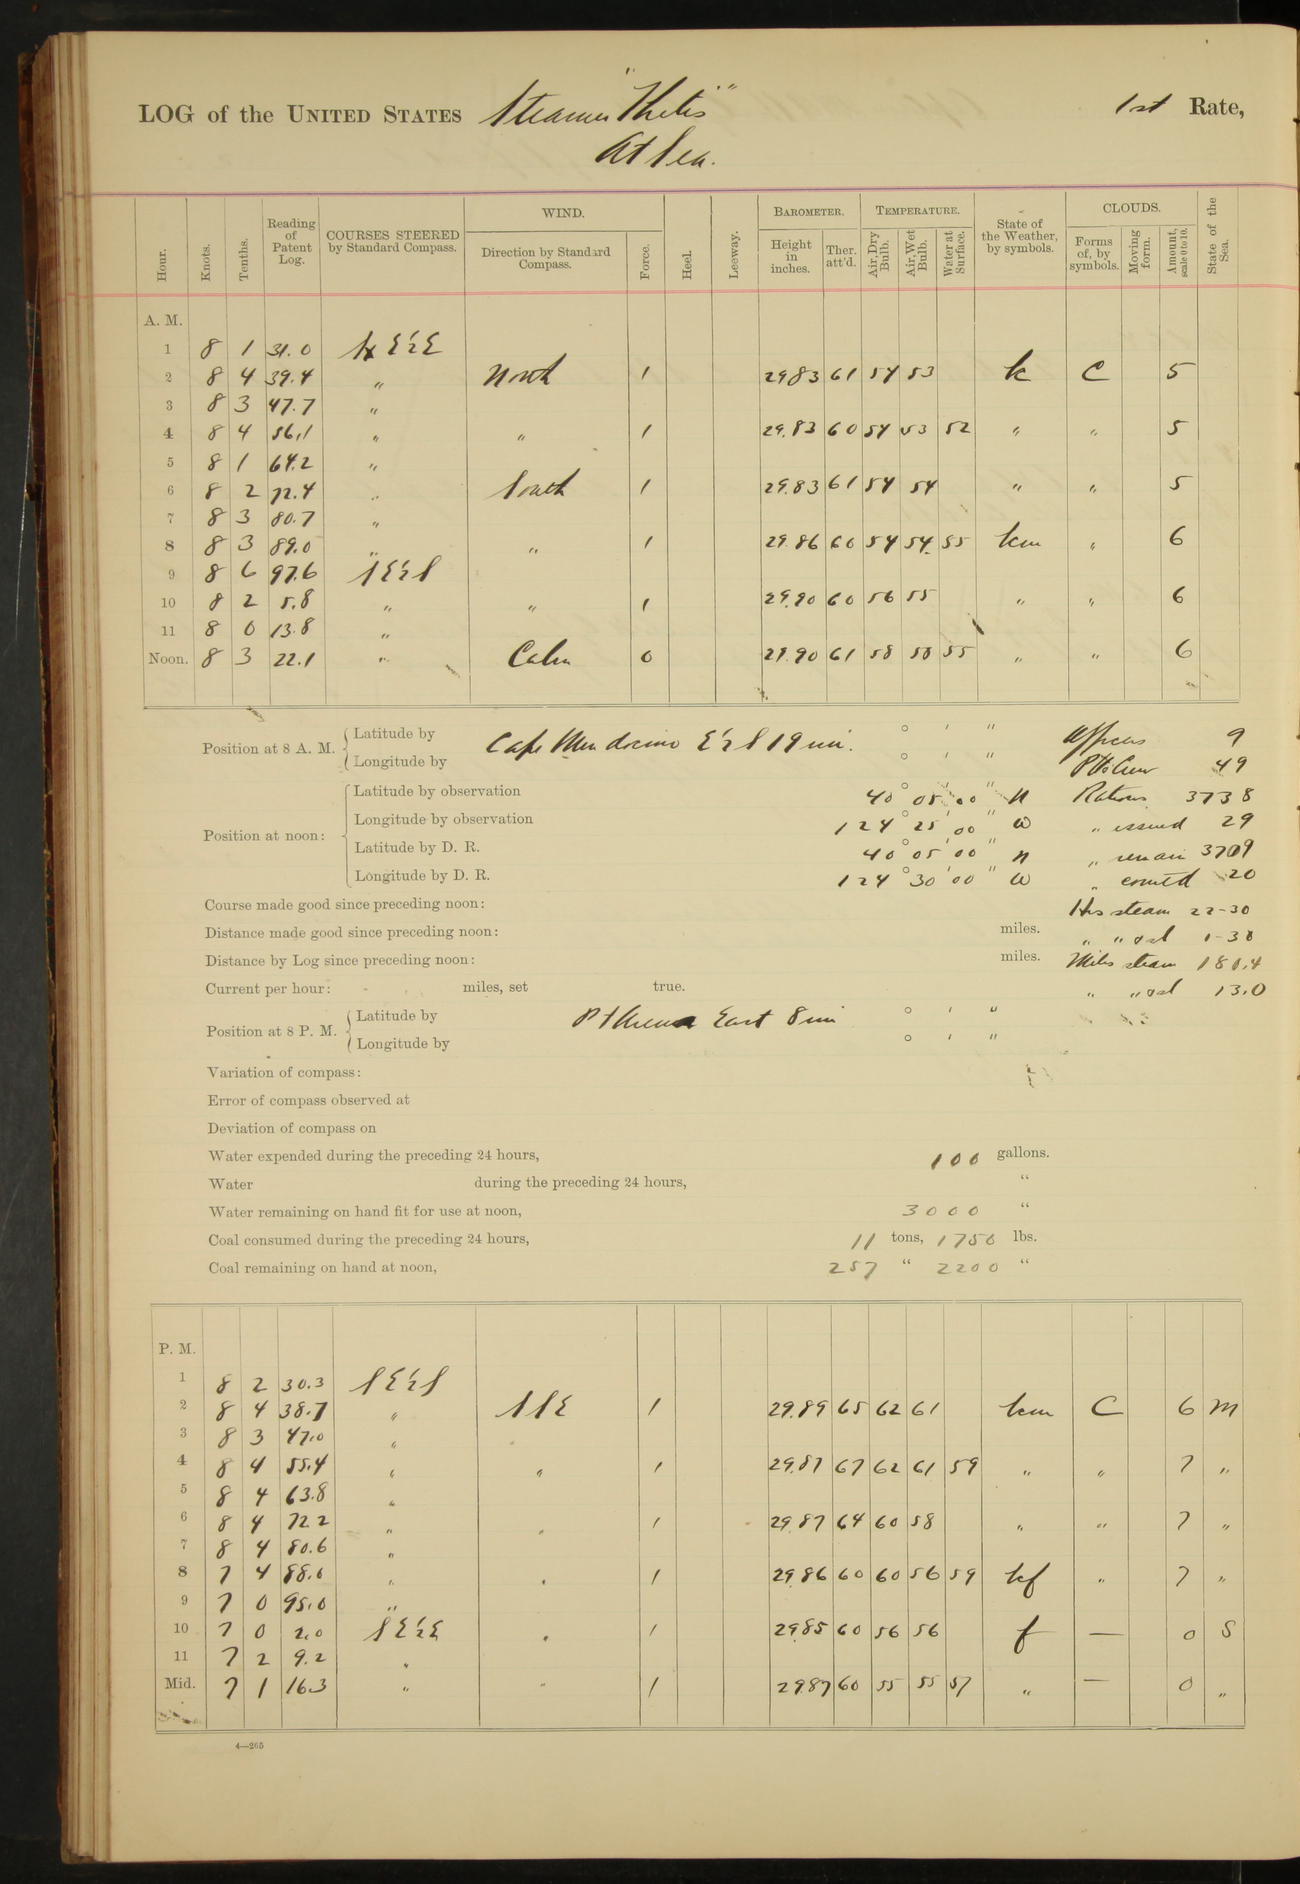 LOG of the UNITED STATES Steamer "Thetis" 1st Rate,
At Sea.
Hour. Knots. Tenths. Reading of Patent Log. COURSES STEERED by Standard Compass. WIND. Direction by Standard Compass. Force. Heel. Leeway. BAROMETER. Height in inches. Ther. att'd. TEMPERATURE. Air, Dry Bulb. Air, Wet Bulb. Water at Surface. State of the Weather, by symbols. CLOUDS. Forms of, by symbols. Moving form. Amount, scale 0 to 10. State of the Sea.
A. M.
1 8 1 31.0 E½E
2 8 4 39.4 " North 1 29.83 61 54 53 C 5
3 8 3 47.7 "
4 8 4 56.1 " " 1 29.83 60 54 53 52 " " 5
5 8 1 64.2 "
6 8 2 72.4 " South 1 29.83 61 54 54 " " 5
7 8 3 80.7 "
8 8 3 89.0 " " 1 29.86 60 54 54 55 " 6
9 8 6 97.6 SE½S
10 8 2 5.8 " " 1 29.90 60 56 55 " " 6
11 8 0 13.8 "
Noon. 8 3 22.1 " Calm 0 29.90 61 58 58 55 " " 6
Position at 8 A. M. Latitude by Cape Mendocino E½S 19 mi. ° ' " Officers 9
Longitude by ° ' " Crew 49
Position at noon: Latitude by observation 40° 05' 00" N Rations 3738
Longitude by observation 124° 25' 00" W " issued 29
Latitude by D. R. 40° 05' 00" N " remain 3709
Longitude by D. R. 124° 30' 00" W " 20
Course made good since preceding noon: Hrs steam 22-30
Distance made good since preceding noon: miles. " " 1-30
Distance by Log since preceding noon: miles. Miles steam 181.4
Current per hour: miles, set true. " " 13.0
Position at 8 P. M. Latitude by Pt Arena East 8 mi ° ' "
Longitude by ° ' "
Variation of compass:
Error of compass observed at
Deviation of compass on
Water expended during the preceding 24 hours, 100 gallons.
Water during the preceding 24 hours, "
Water remaining on hand fit for use at noon, 3000 "
Coal consumed during the preceding 24 hours, 11 tons, 1750 lbs.
Coal remaining on hand at noon, 257 " 2200 "
P. M.
1 8 2 30.3 SE½S
2 8 4 38.7 " SSE 1 29.89 65 62 61 C 6 M
3 8 3 47.0 "
4 8 4 55.4 " " 1 29.87 67 62 61 59 " " 7 "
5 8 4 63.8 "
6 8 4 72.2 " " 1 29.87 64 60 58 " " 7 "
7 8 4 80.6 "
8 7 4 88.0 " " 1 29.86 60 60 56 59 " 7 "
9 7 0 95.0 "
10 7 0 2.0 SE½E " 1 29.85 60 56 56 f — 0 S
11 7 2 9.2 "
Mid. 7 1 16.3 " " 1 29.87 60 55 55 57 " — 0 "
4—265